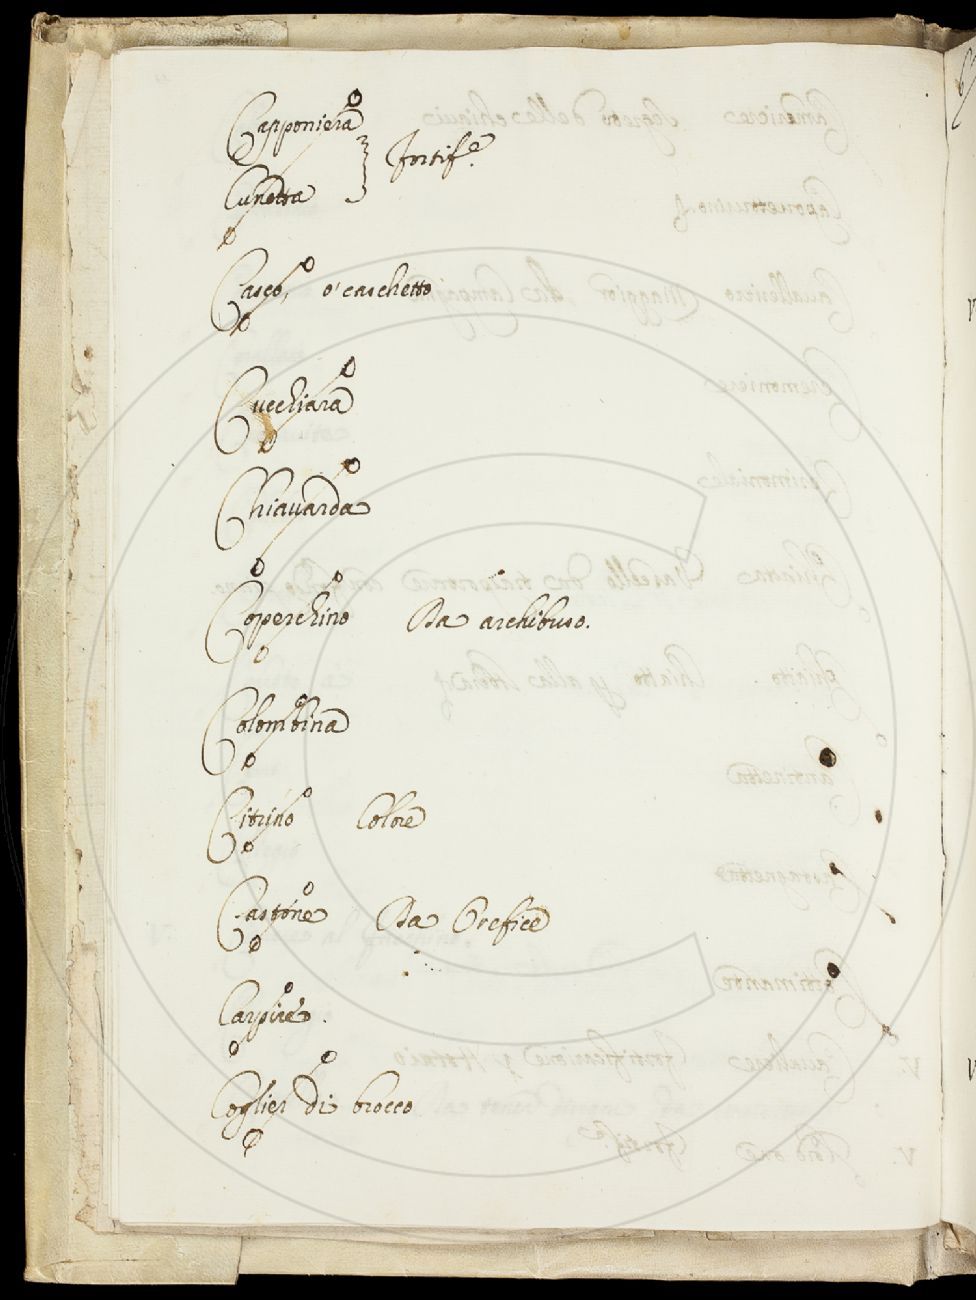 Capponiera
Fortif.e
Cunetta
Casco, o' caschetto
Cucchiara
Chiauarda
Coperchino Da archibuso.
Colombina
Citrino Colore
Castone Da Orefice
Carpire.
Coglier di brocco